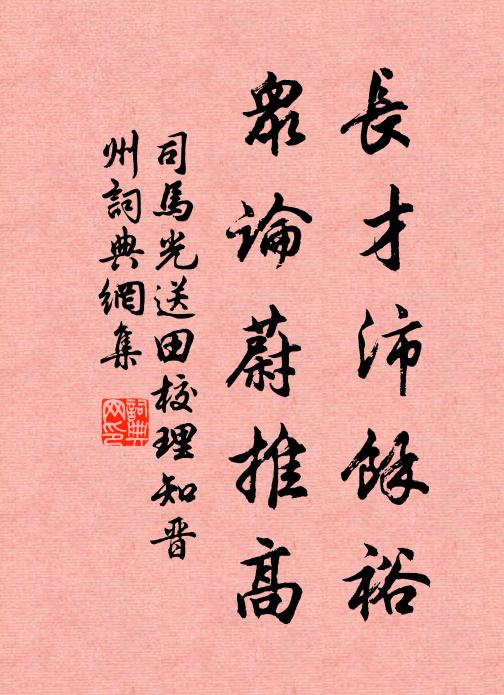 長才沛餘裕
衆論蔚推高
司馬光送田校理知晉
州詞典網集
詞典
网印